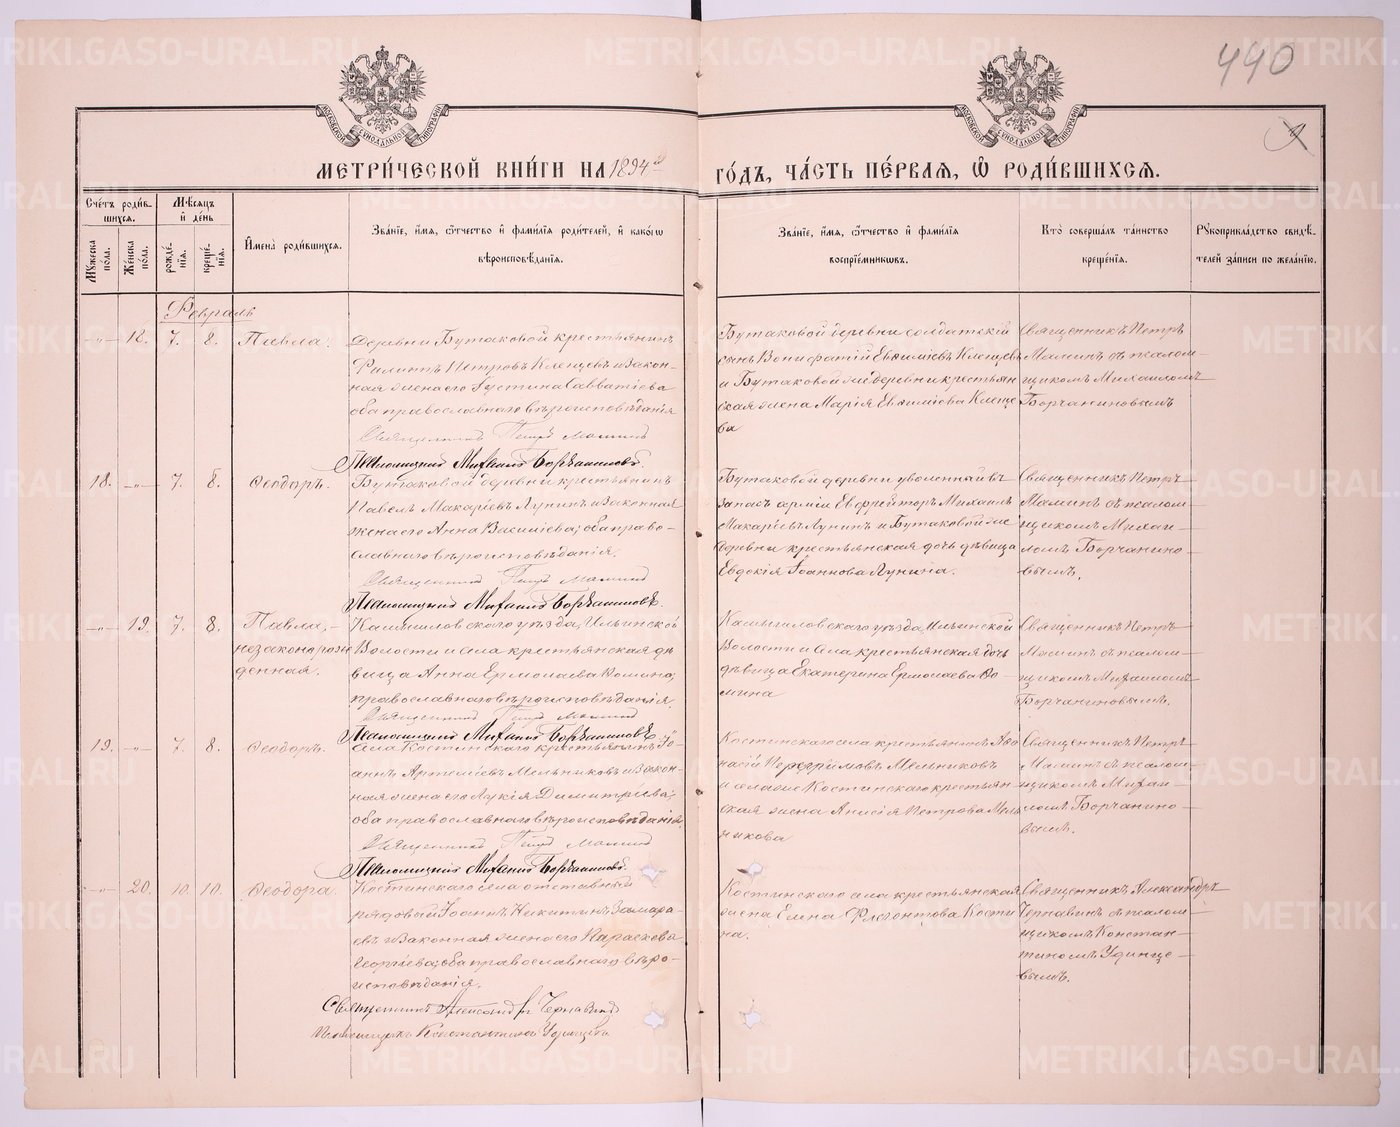 440
МЕТРИЧЕСКОЙ КНИГИ НА 1894й ГОДЪ, ЧАСТЬ ПЕРВАЯ, Ѡ РОДИВШИХСЯ.
Счетъ родив-
шихся.
Мужеска
пола.
Женска
пола.
Мѣсяцъ
и день
рожде-
нія.
креще-
нія.
Имена родившихся.
Званіе, имя, отчество и фамилія родителей, и какого
вѣроисповѣданія.
Званіе, имя, отчество и фамилія
воспріемниковъ.
Кто совершалъ таинство
крещенія.
Рукоприкладство свидѣ-
телей записи по желанію.
Февраль
18. 7. 8. Павла.
Деревни Бутаковой крестьянинъ
Филиппъ Петровъ Клепцевъ и закон-
ная жена его Устина Савватіева
оба православнаго вѣроисповѣданія
Священникъ Петръ Маминъ
Псаломщикъ Михаилъ Борчаниновъ.
Бутаковой деревни солдатскій
сынъ Вонифатій Евѳиміевъ Клепцевъ
и Бутаковой же деревни крестьян
ская жена Марія Евѳиміева Клепце
ва
Священникъ Петръ
Маминъ съ псалом-
щикомъ Михаиломъ
Борчаниновымъ
18. 7. 8. Ѳеодоръ.
Бутаковой деревни крестьянинъ
Павелъ Макаріевъ Лунинъ и законная
жена его Анна Василіева; оба право-
славнаго вѣроисповѣданія.
Священникъ Петръ Маминъ
Псаломщикъ Михаилъ Борчаниновъ.
Бутаковой деревни уволенный въ
запасъ арміи Ефрейторъ Михаилъ
Макаріевъ Лунинъ и Бутаковой же
деревни крестьянская дочь дѣвица
Евдокія Іоаннова Лунина.
Священникъ Петръ
Маминъ съ псалом-
щикомъ Михаи-
ломъ Борчанино-
вымъ.
19. 7. 8. Павла,
незаконорож
денная.
Камышловскаго уѣзда, Ильинской
Волости и села крестьянская дѣ
вица Анна Ермолаева Фомина;
православнаго вѣроисповѣданія
Священникъ Петръ Маминъ
Псаломщикъ Михаилъ Борчаниновъ
Камышловскаго уѣзда, Ильинской
Волости и села крестьянская дочь
дѣвица Екатерина Ермолаева Фо-
мина
Священникъ Петръ
Маминъ съ псалом-
щикомъ Михаиломъ
Борчаниновымъ.
19. 7. 8. Ѳеодоръ.
Села Костинскаго крестьянинъ Іо-
аннъ Артеміевъ Мельниковъ и закон-
ная жена его Лукія Димитріева;
оба православнаго вѣроисповѣданія.
Священникъ Петръ Маминъ
Псаломщикъ Михаилъ Борчаниновъ.
Костинскаго села крестьянинъ Аѳа
насій Мельниковъ
и села же Костинскаго крестьян
ская жена Анисія Петрова Мель
никова
Священникъ Петръ
Маминъ съ псалом-
щикомъ Михаи-
ломъ Борчанино-
вымъ.
20. 10. 10. Ѳеодора.
Костинскаго села отставный
рядовой Іоаннъ Никитинъ Замара-
евъ и законная жена его Параскева
Георгіева; оба православнаго вѣро-
исповѣданія.
Священникъ Александръ Чернавинъ
Псаломщикъ Константинъ Удинцевъ
Костинскаго села крестьянская
жена Елена Флегонтова Кости
на.
Священникъ Александръ
Чернавинъ съ псалом-
щикомъ Констан-
тиномъ Удинце-
вымъ.
METRIKI.GASO-URAL.RU